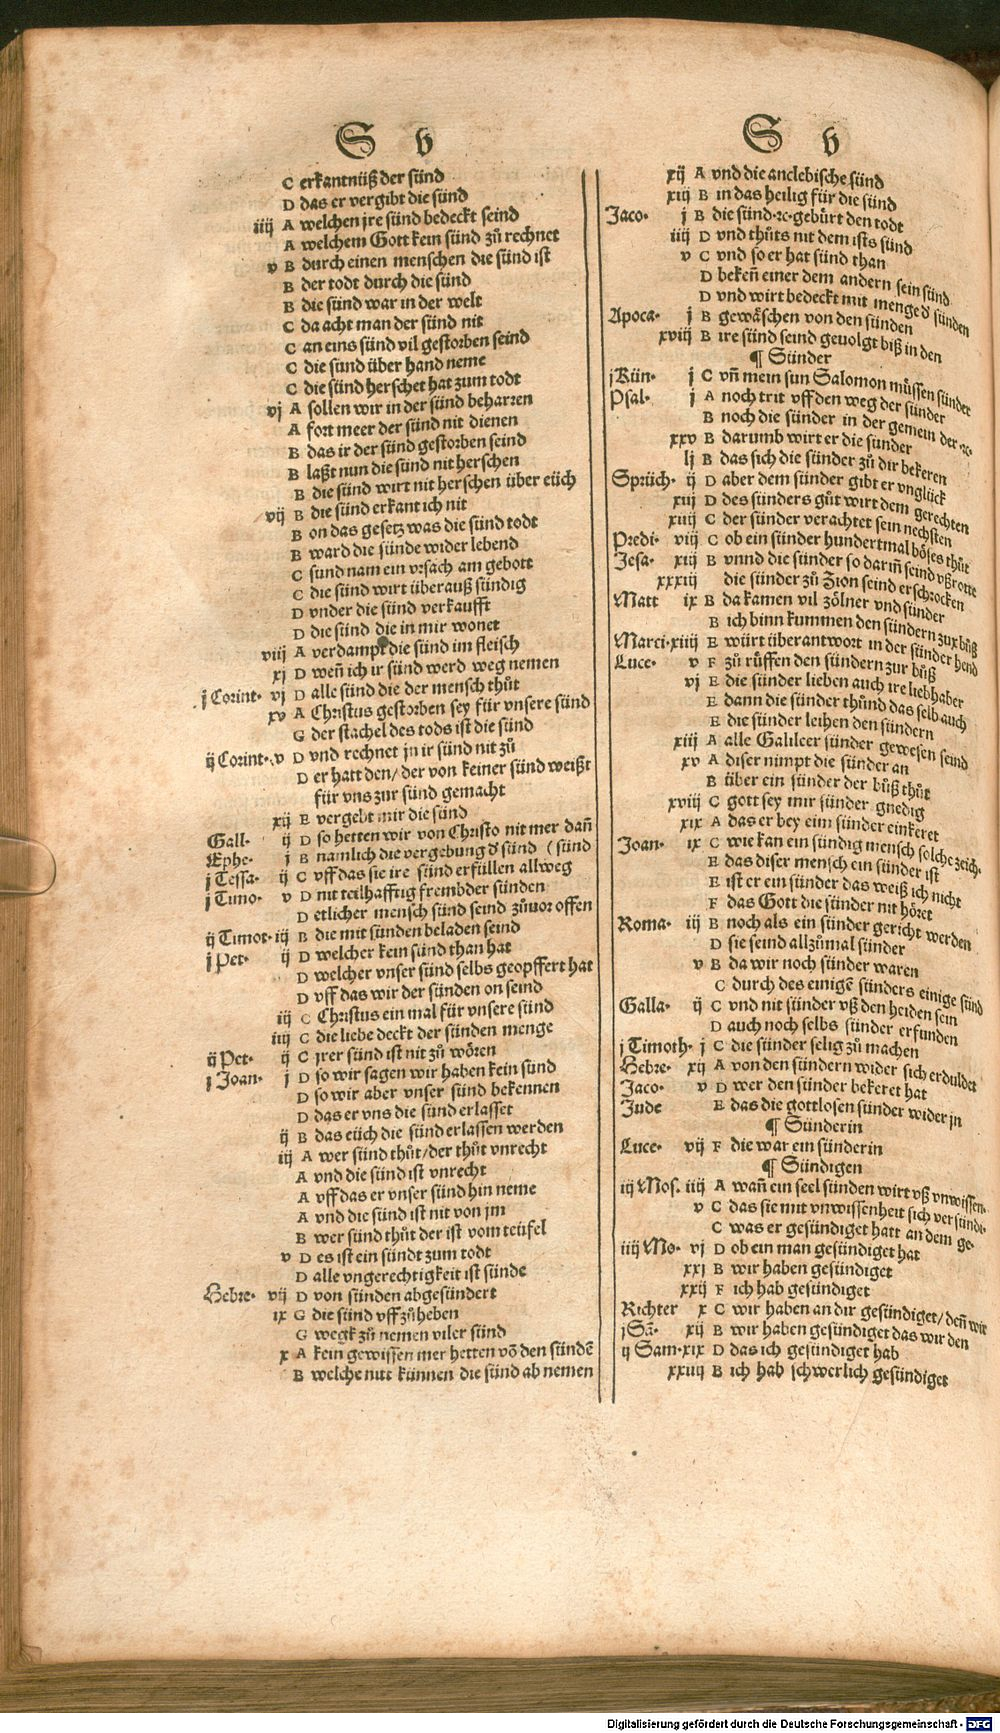 S v
C erkantnüß der sünd
D das er vergibt die sünd
iiij A welchen jre sünd bedeckt seind
A welchem Gott kein sünd zů rechnet
v B durch einen menschen die sünd ist
B der todt durch die sünd
B die sünd war in der welt
C da acht man der sünd nit
C an eins sünd vil gestorben seind
C die sünd über hand neme
C die sünd herschet hat zum todt
vj A sollen wir in der sünd beharren
A fort meer der sünd nit dienen
B das ir der sünd gestorben seind
B laßt nun die sünd nit herschen
B die sünd wirt nit herschen über eüch
vij B die sünd erkant ich nit
B on das gesetz was die sünd todt
B ward die sünde wider lebend
C sünd nam ein vrsach am gebott
C die sünd wirt überauß sündig
D vnder die sünd verkaufft
D die sünd die in mir wonet
viij A verdampt die sünd im fleisch
xj D weñ ich ir sünd werd weg nemen
j Corint· vj D alle sünd die der mensch thůt
xv A Christus gestorben sey für vnsere sünd
G der stachel des tods ist die sünd
ij Corint· v D vnd rechnet jn ir sünd nit zů
D er hatt den/ der von keiner sünd weißt
für vns zur sünd gemacht
xij E vergebt mir die sünd
Gall· ij D so hetten wir von Christo nit mer dañ
Ephe· j B namlich die vergebung d̕ sünd (sünd
j Tessa· ij C vff das sie ire sünd erfüllen allweg
j Timo· v D nit teilhafftig frembder sünden
D etlicher mensch sünd seind zůvor offen
ij Timot· iij B die mit sünden beladen seind
j Pet· ij D welcher kein sünd than hat
D welcher vnser sünd selbs geopffert hat
D vff das wir der sünden on seind
iij C Christus ein mal für vnsere sünd
iiij C die liebe deckt der sünden menge
ij Pet· ij C jrer sünd ist nit zů wören
j Joan· j D so wir sagen wir haben kein sünd
D so wir aber vnser sünd bekennen
D das er vns die sünd erlasset
ij B das eüch die sünd erlassen werden
iij A wer sünd thůt/der thůt vnrecht
A vnd die sünd ist vnrecht
A vff das er vnser sünd hin neme
A vnd die sünd ist nit von jm
B wer sünd thůt der ist vom teüfel
v D es ist ein sündt zum todt
D alle vngerechtigkeit ist sünde
Hebre· vij D von sünden abgesündert
ix G die sünd vffzůheben
G wegk zů nemen viler sünd
x A kein gewissen mer hetten võ den sündẽ
B welche nit künnen die sünd ab nemen
S v
xij A vnd die anclebische sünd
xiij B in das heilig für die sünd
Jaco· j B die sünd·ꝛc·gebürt den todt
iiij D vnd thůts nit dem ists sünd
v C vnd so er hat sünd than
D bekeñ einer dem andern sein sünd
D vnd wirt bedeckt mit menge d̕ sünden
Apoca· j B gewäschen von den sünden
xviij B ire sünd seind geuolgt biß in den
¶ Sünder
j Kün· j C vñ mein sun Salomon müssen sünder
Psal· j A noch trit vff den weg der sünder
B noch die sünder in der gemein der ·ꝛc·
xxv B darumb wirt er die sünder
lj B das sich die sünder zů dir bekeren
Sprüch· ij D aber dem sünder gibt er vnglück
xiij D des sünders gůt wirt dem gerechten
xiiij C der sünder verachtet sein nechsten
Predi· viij C ob ein sünder hundertmal böses thůt
Jesa· xiij B vnnd die sünder so dariñ seind vßrotte
xxxiij die sünder zů Zion seind erschrocken
Matt ix B da kamen vil zölner vnd sünder
B ich binn kummen den sündern zur bůß
Marci·xiiij E würt überantwort in der sünder hend
Luce· v F zů růffen den sündern zur bůß
vj E die sünder lieben auch ire liebhaber
E dann die sünder thůnd das selb auch
E die sünder leihen den sündern
xiij A alle Galileer sünder gewesen seind
xv A diser nimpt die sünder an
B über ein sünder der bůß thůt
xviij C gott sey mir sünder gnedig
xix A das er bey eim sünder einkeret
Joan· ix C wie kan ein sündig mensch solche zeich·
E das diser mensch ein sünder ist
E ist er ein sünder das weiß ich nicht
F das Gott die sünder nit höret
Roma· iij B noch als ein sünder gericht werden
D sie seind allzůmal sünder
v B da wir noch sünder waren
C durch des einigẽ sünders einige sünd
Galla· ij C vnd nit sünder vß den heiden sein
D auch noch selbs sünder erfunden
j Timoth· j C die sünder selig zů machen
Hebre· xij A von den sündern wider sich erduldet
Jaco· v D wer den sünder bekeret hat
Jude E das die gottlosen sünder wider jn
¶ Sünderin
Luce· vij F die war ein sünderin
¶ Sündigen
iij Mos. iiij A wañ ein seel sünden wirt vß vnwissen·
v C das sie mit vnwissenheit sich versündi·
C was er gesündiget hatt an dem ge·
iiij Mo· vj D ob ein man gesündiget hat
xxj B wir haben gesündiget
xxij F ich hab gesündiget
Richter x C wir haben an dir gesündiget/ deñ wir
j Sã· xij B wir haben gesündiget das wir den
ij Sam·xix D das ich gesündiget hab
xxiiij B ich hab schwerlich gesündiget
Digitalisierung gefördert durch die Deutsche Forschungsgemeinschaft - DFG